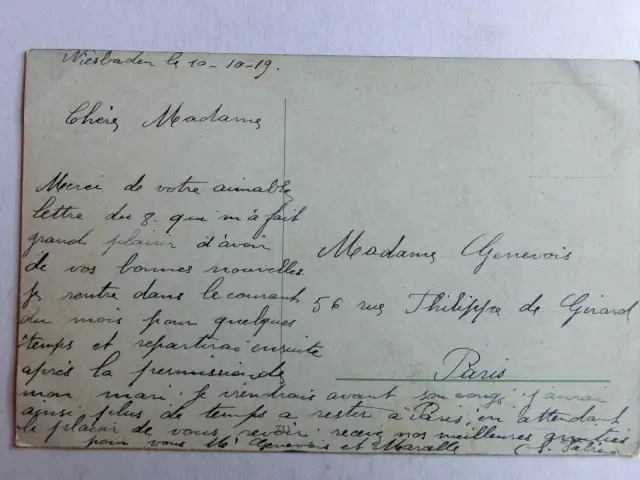 Wiesbaden le 10-10-19.
Chère Madame
Merci de votre aimable
lettre du 8. qui m'a fait
grand plaisir d'avoir
de vos bonnes nouvelles
Je rentre dans le courant
du mois pour quelques
temps et repartirai ensuite
après la permission de
mon mari. Je viendrais avant son congé j'aurai
ainsi plus de temps a rester à Paris, en attendant
le plaisir de vous revoir recevez nos meilleures
pour vous Mr Genevois et Marcelle
Madame Genevois
56 rue Philippe de Girard
Paris